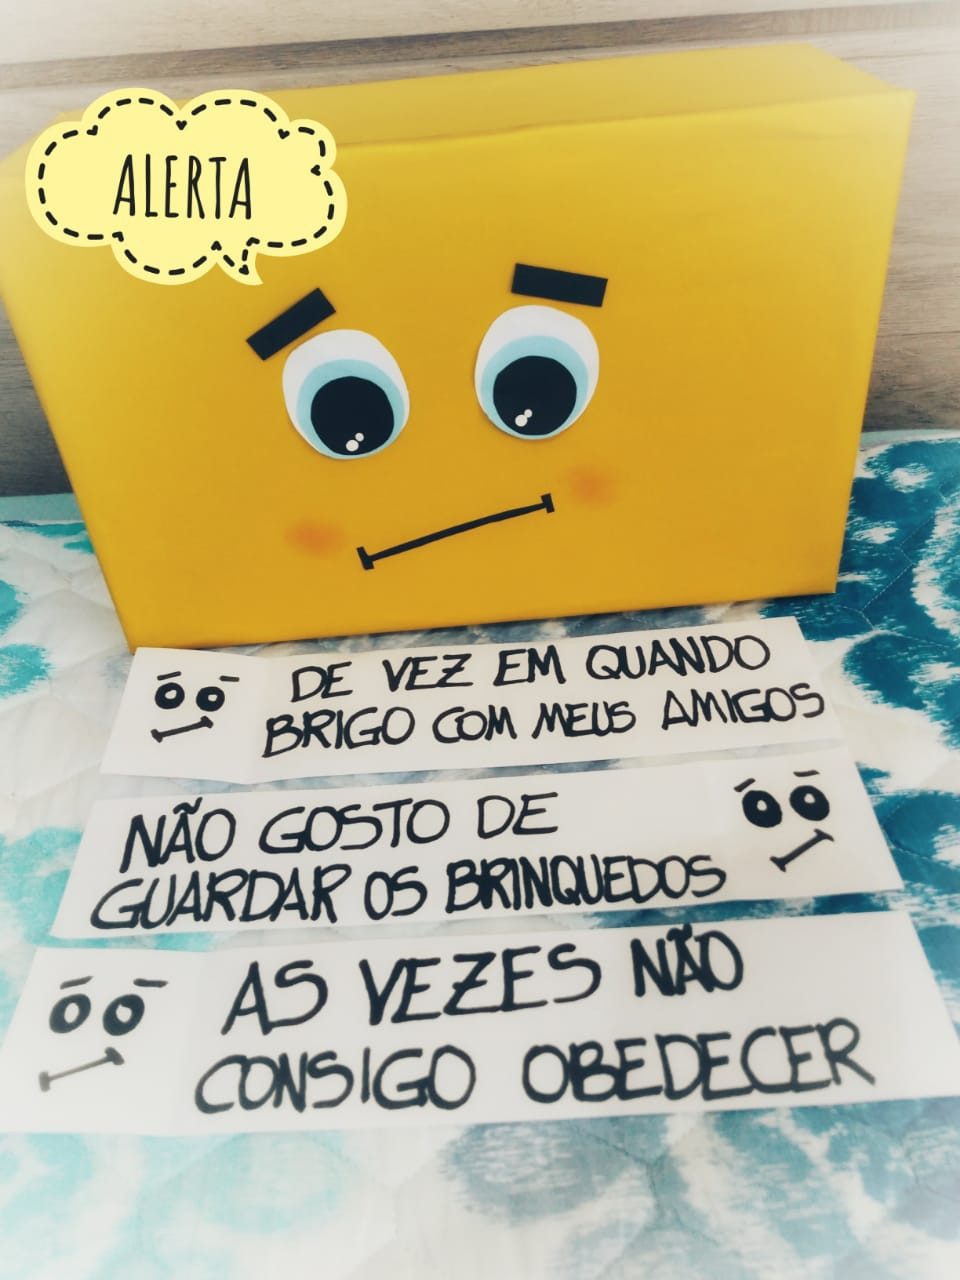 ALERTA
DE VEZ EM QUANDO
BRIGO COM MEUS AMIGOS
NÃO GOSTO DE
GUARDAR OS BRINQUEDOS
AS VEZES NÃO
CONSIGO OBEDECER